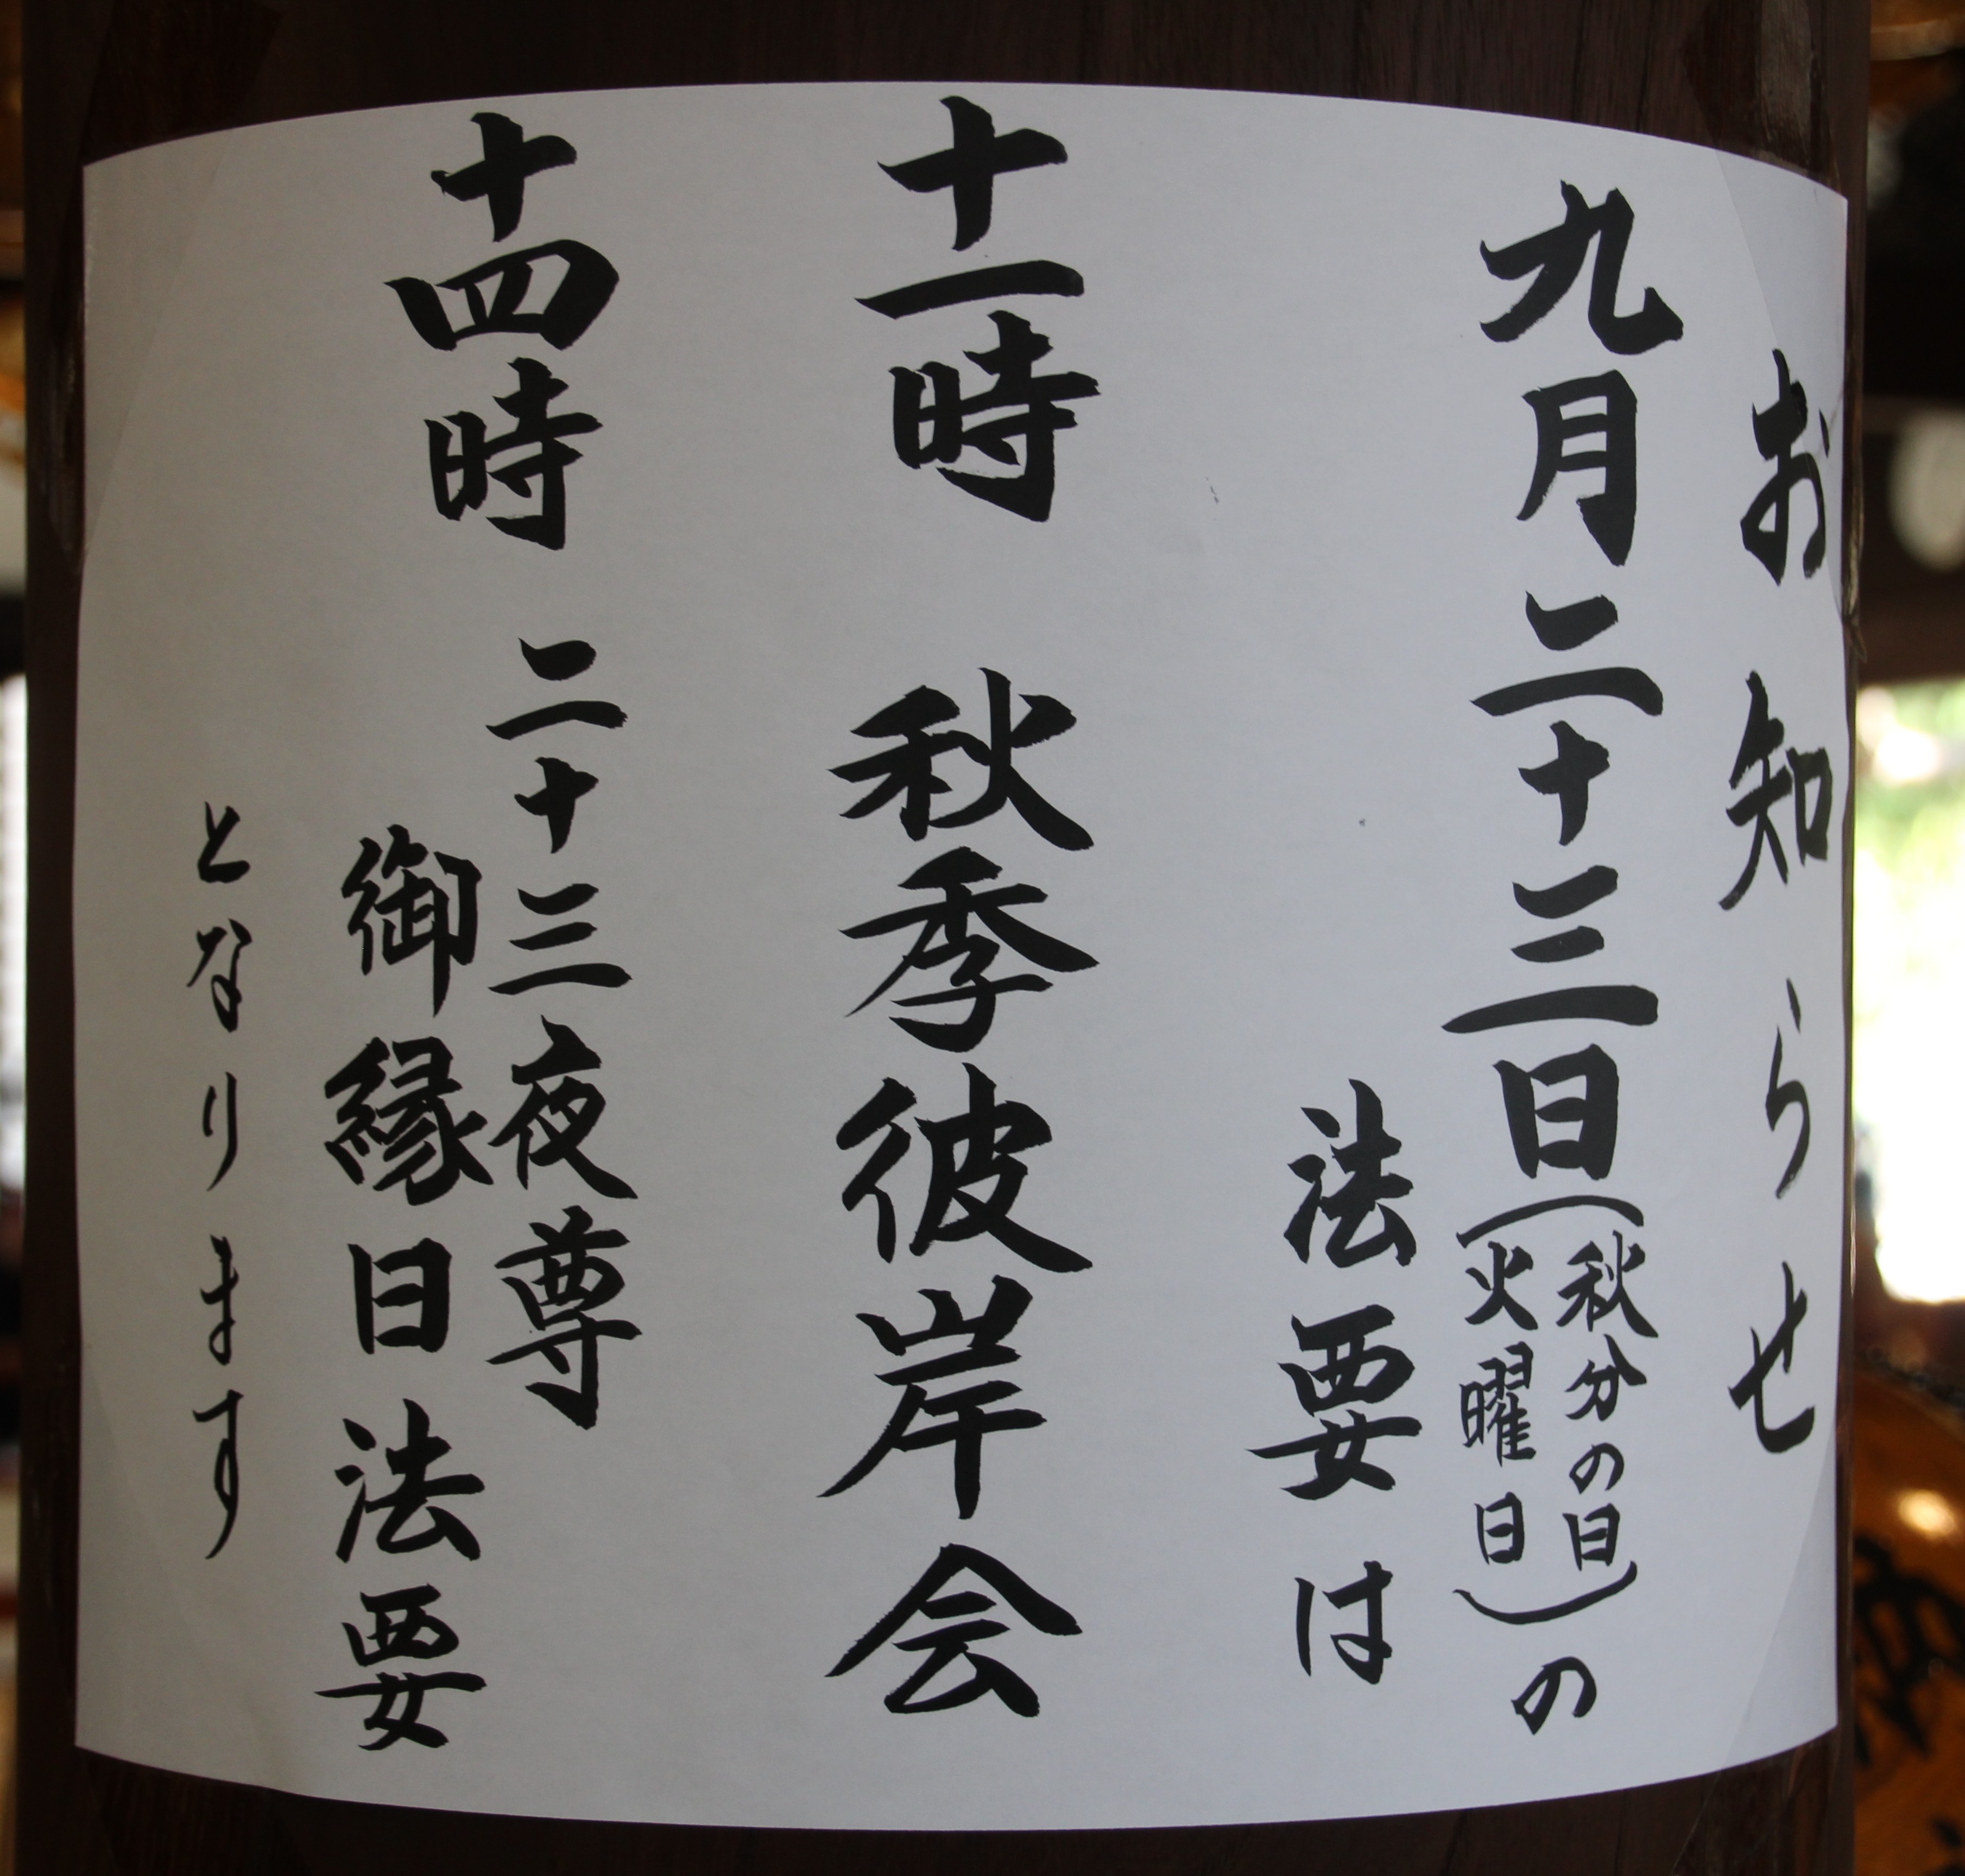 お知らせ
九月二十三日(秋分の日
火曜日)の
法要は
十一時 秋季彼岸会
十四時 二十三夜尊
御縁日法要
となります